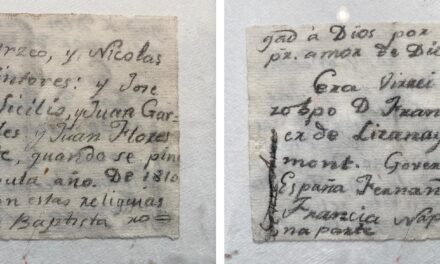 y, Nicolas
intores: y Jose
Sicilio, y Juan Gar-
les y Juan Flores
quando se pin
año. De 1810
on estas religuias
Baptista
à Dios por
pr. amor de Di
Era Virrei
zobpo D. Fran
er de Lizana y
mont. Gover
España Fernan
Francia Nap
na parte